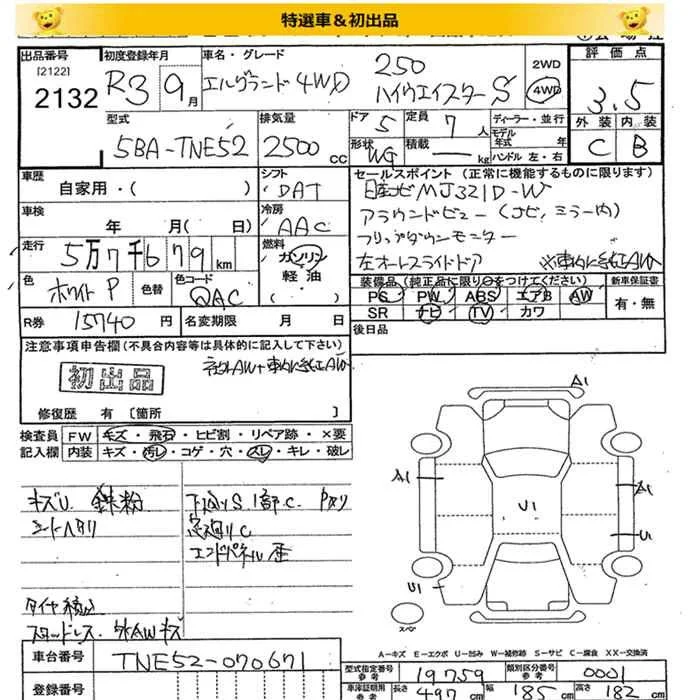 特選車&初出品
出品番号
[2122]
2132
初度登録年月
R3 9月
車名・グレード
エルグランド 4WD
250
ハイウェイスター S
2WD
4WD
評価点
3.5
外装 内装
C B
型式
5BA-TNE52
排気量
2500 cc
ドア 5
定員 7 人
形状 WG
積載 kg
ディーラー・並行
モデル
年式 年
ハンドル 左・右
車歴
自家用・( )
シフト
DAT
車検
年 月( 日)
冷房
AAC
走行
5万7千6 79 km
燃料
ガソリン
軽油
( )
色
ホワイトP
色替
色コード
QAC
R券 15740 円
名変期限 月 日
セールスポイント (正常に機能するものに限ります)
日産ナビMJ321D-W
アラウンドビュー (ナビ,ミラー内)
フリップダウンモニター
左オートスライドドア ※車内に純正AW
装備品(純正品に限り○をつけてください)
PS PW ABS エアB AW
SR ナビ TV カワ
新車保証書
有・無
後日品
注意事項申告欄(不具合内容等は具体的に記入して下さい)
社外AW+車内に純正AW
初出品
修復歴 有 [箇所 ]
検査員
記入欄
FW キズ・飛石・ヒビ割・リペア跡・×要
内装 キズ・汚レ・コゲ・穴・スレ・キレ・破レ
キズU 鉄粉
シートヘタリ
下回りS 1部C
窓廻りC
エンドパネル歪
タイヤ積込
スタッドレス 外AWキズ
A1
A1
A1
U1
U
U1
スペア
A-キズ E-エクボ U-凹み W-補修跡 S-サビ C-腐食 XX-交換済
車台番号 TNE52-070671
登録番号
型式指定番号
参考
19759
類別区分番号
参考
0001
車庫証明用
参考
長さ 497 cm
幅 185 cm
高さ 182 cm